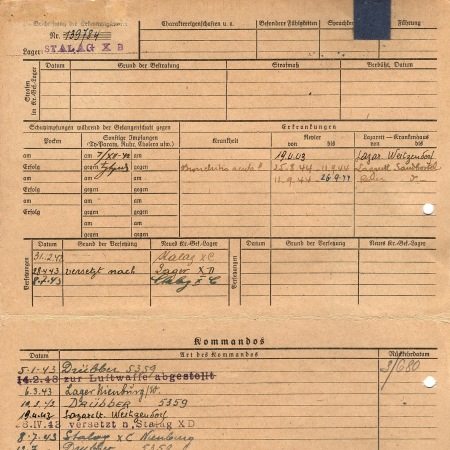 Beschriftung der Erkennungsmarke
Nr. 139784
Lager: STALAG X B
Charaktereigenschaften u. a.
Besondere Fähigkeiten
Führung
Strafen im Kr.-Gef.-Lager
Datum Grund der Bestrafung Strafmaß Verbüßt, Datum
Schutzimpfungen während der Gefangenschaft gegen
Erkrankungen
Pocken Sonstige Impfungen (Ty.-Paraty. Ruhr, Cholera usw.) Krankheit Revier von bis Lazarett – Krankenhaus von bis
am am gegen 19.4.43 Lazar. Wietzendorf
Erfolg gegen Bronchitis acuta 25.8.44 11.9.44 Lazarett Sandbostel
am am 11.9.44 26.9.44
Erfolg gegen
am am
Erfolg gegen
am
gegen
Versetzungen
Datum Grund der Versetzung Neues Kr.-Gef.-Lager Datum Grund der Versetzung Neues Kr.-Gef.-Lager
Stalag X C
28.4.43 versetzt nach Lager X D
8.7.43 Stalag X C
Kommandos
Datum Art des Kommandos Rückkehrdatum
5.1.43 Drübber 5359
14.2.43 zur Luftwaffe abgestellt
6.3.43 Lager Nienburg/W.
Drübber 5359
19.4.43 Lazarett Wietzendorf
28.IV.43 versetzt n. Stalag X D
8.7.43 Stalag X C Nienburg
Drübber 5359